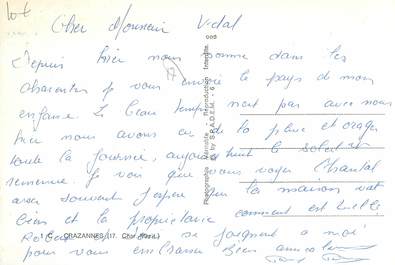 Cher Monsieur Vidal
Depuis hier nous sommes dans les
charentes je vous envoie le pays de mon
enfance. Le beau temps n'est pas avec nous
hier nous avons eu de la pluie et orages
toute la journée, aujourd'hui le soleil
remercie. Je vois que vous voyez Chantal
assez souvent j'espère que la maison va
bien et la propriétaire comment est t'elle
Robert et se joignent a moi
pour vous embrasser bien
008
Photographie Véritable Reproduction Interdite
© by S.P.A.D.E.M. - 6
1 C. CRAZANNES (17. Char.-Marit.)